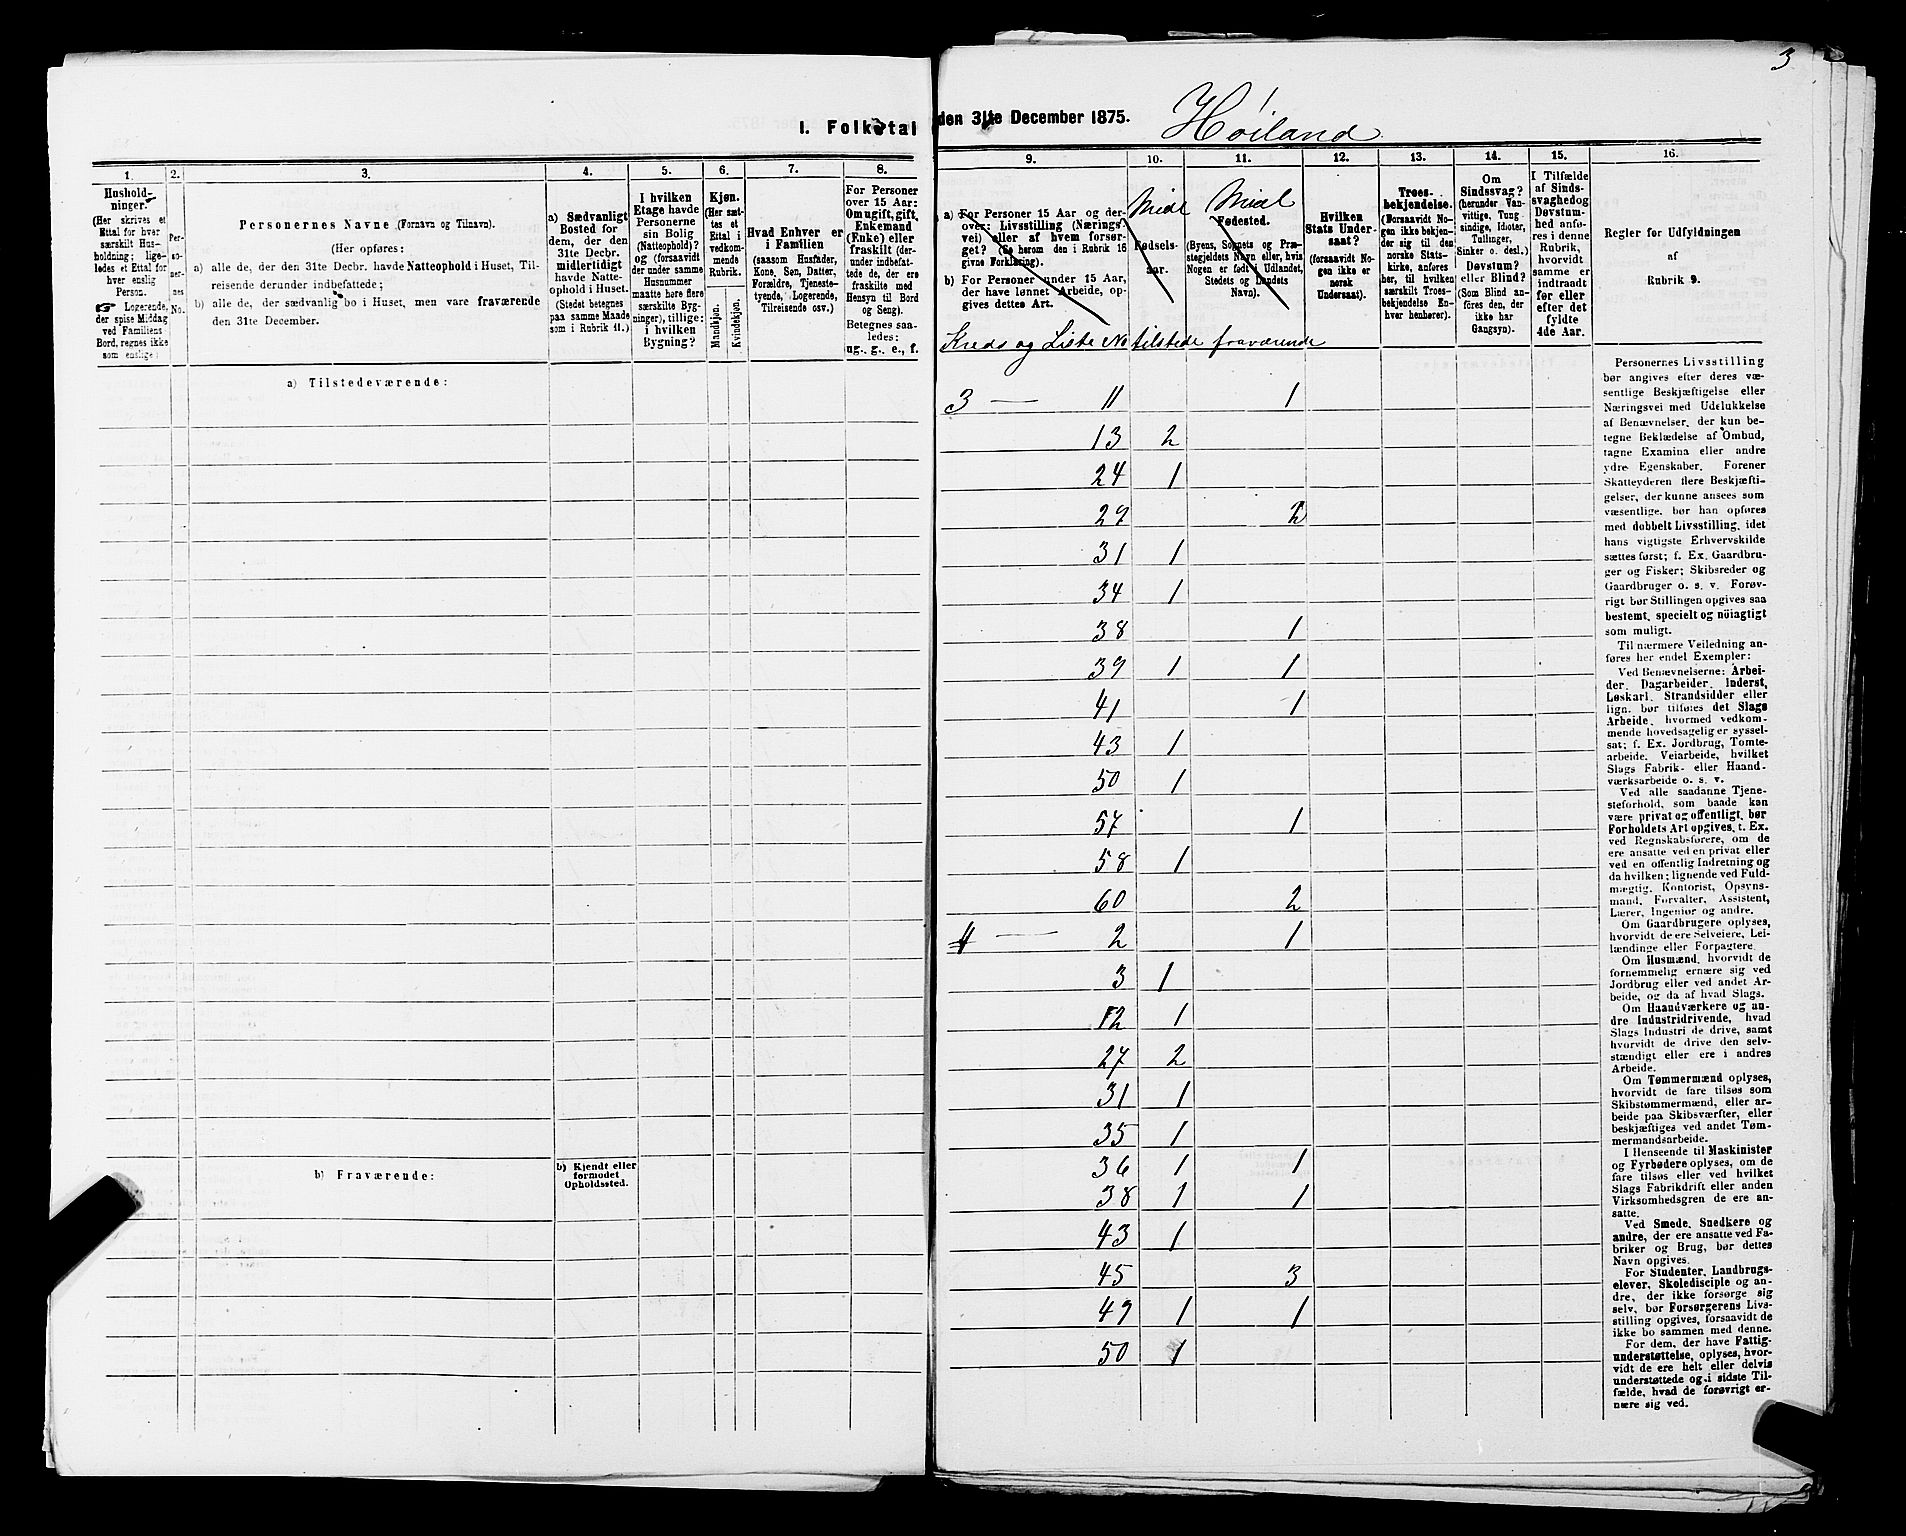 3
I. Folketal den 31te December 1875. Høiland
1. 2. 3. 4. 5. 6. 7. 8.
Hushold-
ninger.
(Her skrives et
Ettal for hver
særskilt Hus-
holdning; lige-
ledes et Ettal for
hver enslig
Person.
☞ Logerende,
der spise Middag
ved Familiens
Bord, regnes ikke
som enslige.)
Per-
so-
ner-
nes
No.
Personernes Navne (Fornavn og Tilnavn).
(Her opføres:
a) alle de, der den 31te Decbr. havde Natteophold i Huset, Til-
reisende derunder indbefattede;
b) alle de, der sædvanlig bo i Huset, men vare fraværende
den 31te December.
a) Sædvanligt
Bosted for
dem, der den
31te Decbr.
midlertidigt
havde Natte-
ophold i Huset.
(Stedet betegnes
paa samme Maade
som i Rubrik 11.)
I hvilken
Etage havde
Personerne
sin Bolig
(Natteophold)?
og (forsaavidt
der under samme
Husnummer
maatte høre flere
særskilte Byg-
ninger), tillige:
i hvilken
Bygning?
Kjøn.
(Her sæt-
tes et
Ettal i
vedkom-
mende
Rubrik.
Mandkjøn.
Kvindekjøn.
Hvad Enhver er
i Familien
(saasom Husfader,
Kone, Søn, Datter,
Forældre, Tjeneste-
tyende, Logerende,
Tilreisende osv.)
For Personer
over 15 Aar:
Om ugift, gift,
Enkemand
(Enke) eller
fraskilt (der-
under indbefat-
tede de, der ere
fraskilte med
Hensyn til Bord
og Seng).
Betegnes saa-
ledes:
ug., g., e., f.
a) Tilstedeværende:
b) Fraværende:
b) Kjendt eller
formodet
Opholdssted.
9. 10. 11. 12. 13. 14. 15. 16.
a) For Personer 15 Aar og der-
over: Livsstilling (Nærings-
vei) eller af hvem forsør-
get? (Se herom den i Rubrik 16
givne Forklaring).
b) For Personer under 15 Aar,
der have lønnet Arbeide, op-
gives dettes Art.
Midl
Fødsels-
aar.
Midl
Fødested.
(Byens, Sognets og Præ-
stegjeldets Navn eller, hvis
Nogen er født i Udlandet,
Stedets og Landets
Navn).
Hvilken
Stats Under-
saat?
(forsaavidt No-
gen ikke er
norsk
Undersaat).
Troes-
bekjendelse.
(Forsaavidt No-
gen ikke bekjen-
der sig til den
norske Stats-
kirke, anføres
her, til hvilken
særskilt Troes-
bekjendelse En-
hver henhører).
Om
Sindssvag?
(herunder Van-
vittige, Tung
sindige, Idioter,
Tullinger,
Sinker o. desl.).
Døvstum?
eller Blind?
(Som Blind an-
føres den, der
ikke har
Gangsyn).
I Tilfælde
af Sinds-
svaghed og
Døvstum-
hed anfø-
res i denne
Rubrik,
hvorvidt
samme er
indtraadt
før eller
efter det
fyldte
4de Aar.
Regler for Udfyldningen
af
Rubrik 9.
Kreds og Liste No tilstede fraværende
3 — 11 1
13 2
24 1
29 2
31 1
34 1
38 1
39 1 1
41 1
43 1
50 1
57 1
58 1
60 2
4 — 2 1
3 1
12 1
27 2
31 1
35 1
36 1 1
38 1 1
43 1
45 3
49 1 1
50 1
Personernes Livsstilling
bør angives efter deres væ-
sentlige Beskjæftigelse eller
Næringsvei med Udelukkelse
af Benævnelser, der kun be-
tegne Beklædelse af Ombud,
tagne Examina eller andre
ydre Egenskaber. Forener
Skatteyderen flere Beskjæfti-
gelser, der kunne ansees som
væsentlige, bør han opføres
med dobbelt Livsstilling, idet
hans vigtigste Erhvervskilde
sættes først; f. Ex. Gaardbru-
ger og Fisker; Skibsreder og
Gaardbruger o. s. v. Forøv-
rigt bør Stillingen opgives saa
bestemt, specielt og nöiagtigt
som muligt.
Til nærmere Veiledning an-
føres her endel Exempler:
Ved Benævnelserne: Arbei-
der, Dagarbeider, Inderst,
Løskarl, Strandsidder eller
lign. bør tilføres det Slags
Arbeide, hvormed vedkom-
mende hovedsagelig er syssel-
sat; f. Ex. Jordbrug, Tomte-
arbeide, Veiarbeide, hvilket
Slags Fabrik- eller Haand-
værksarbeide o. s. v.
Ved alle saadanne Tjene-
steforhold, som baade kan
være privat og offentligt, bør
Forholdets Art opgives, t. Ex.
ved Regnskabsførere, om de
ere ansatte ved en privat eller
ved en offentlig Indretning og
da hvilken; lignende ved Fuld-
mægtig, Kontorist, Opsyns-
mand, Forvalter, Assistent,
Lærer, Ingeniør og andre.
Om Gaardbrugere oplyses,
hvorvidt de ere Selveiere, Lei-
lændinge eller Forpagtere.
Om Husmænd, hvorvidt de
fornemmelig ernære sig ved
Jordbrug eller ved andet Ar-
beide, og da af hvad Slags.
Om Haandværkere og an-
dre Industridrivende, hvad
Slags Industri de drive, samt
hvorvidt de drive den selv-
stændigt eller ere i andres
Arbeide.
Om Tømmermænd oplyses,
hvorvidt de fare tilsøs som
Skibstømmermænd, eller ar-
beide paa Skibsværfter, eller
beskjæftiges ved andet Tøm-
mermandsarbeide.
I Henseende til Maskinister
og Fyrbødere oplyses, om de
fare tilsøs eller ved hvilket
Slags Fabrikdrift eller anden
Virksomhedsgren de ere an-
satte.
Ved Smede, Snedkere og
andre, der ere ansatte ved Fa-
briker og Brug, bør dettes
Navn opgives.
For Studenter, Landbrugs-
elever, Skoledisciple og an-
dre, der ikke forsørge sig
selv, bør Forsørgerens Livs-
stilling opgives, forsaavidt de
ikke bo sammen med denne.
For dem, der have Fattig-
understøttelse, oplyses, hvor-
vidt de ere helt eller delvis
understøttede og i sidste Til-
fælde, hvad de forøvrigt er-
nære sig ved.